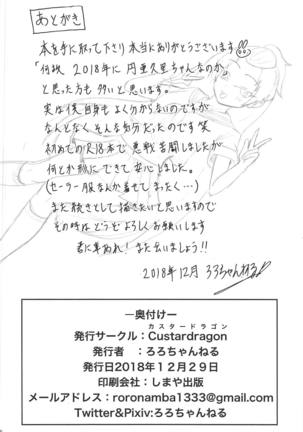 あとがき
本を手に取って下さり本当にありがとうございます!!
「何故 2018年に 円亜久里ちゃんなのか」
と思った方も 多いと思います。
実は僕自身も よく分からないのですが
なんとなく そんな気分だったのです 笑
初めての R18本で 悪戦苦闘しましたが
何とか形にできて 安心しました。
(セーラー服なんか着せて まったく…)
また続きとして 描きたいと思いますので
その時は どうぞ よろしくお願いします
君に幸あれ! また会いましょう!!
2018年12月 ろろちゃんねる
ー奥付けー
カスタードラゴン
発行サークル：Custardragon
発行者　：ろろちゃんねる
発行日2018年12月29日
印刷会社：しまや出版
メールアドレス：roronamba1333@gmail.com
Twitter&Pixiv:ろろちゃんねる